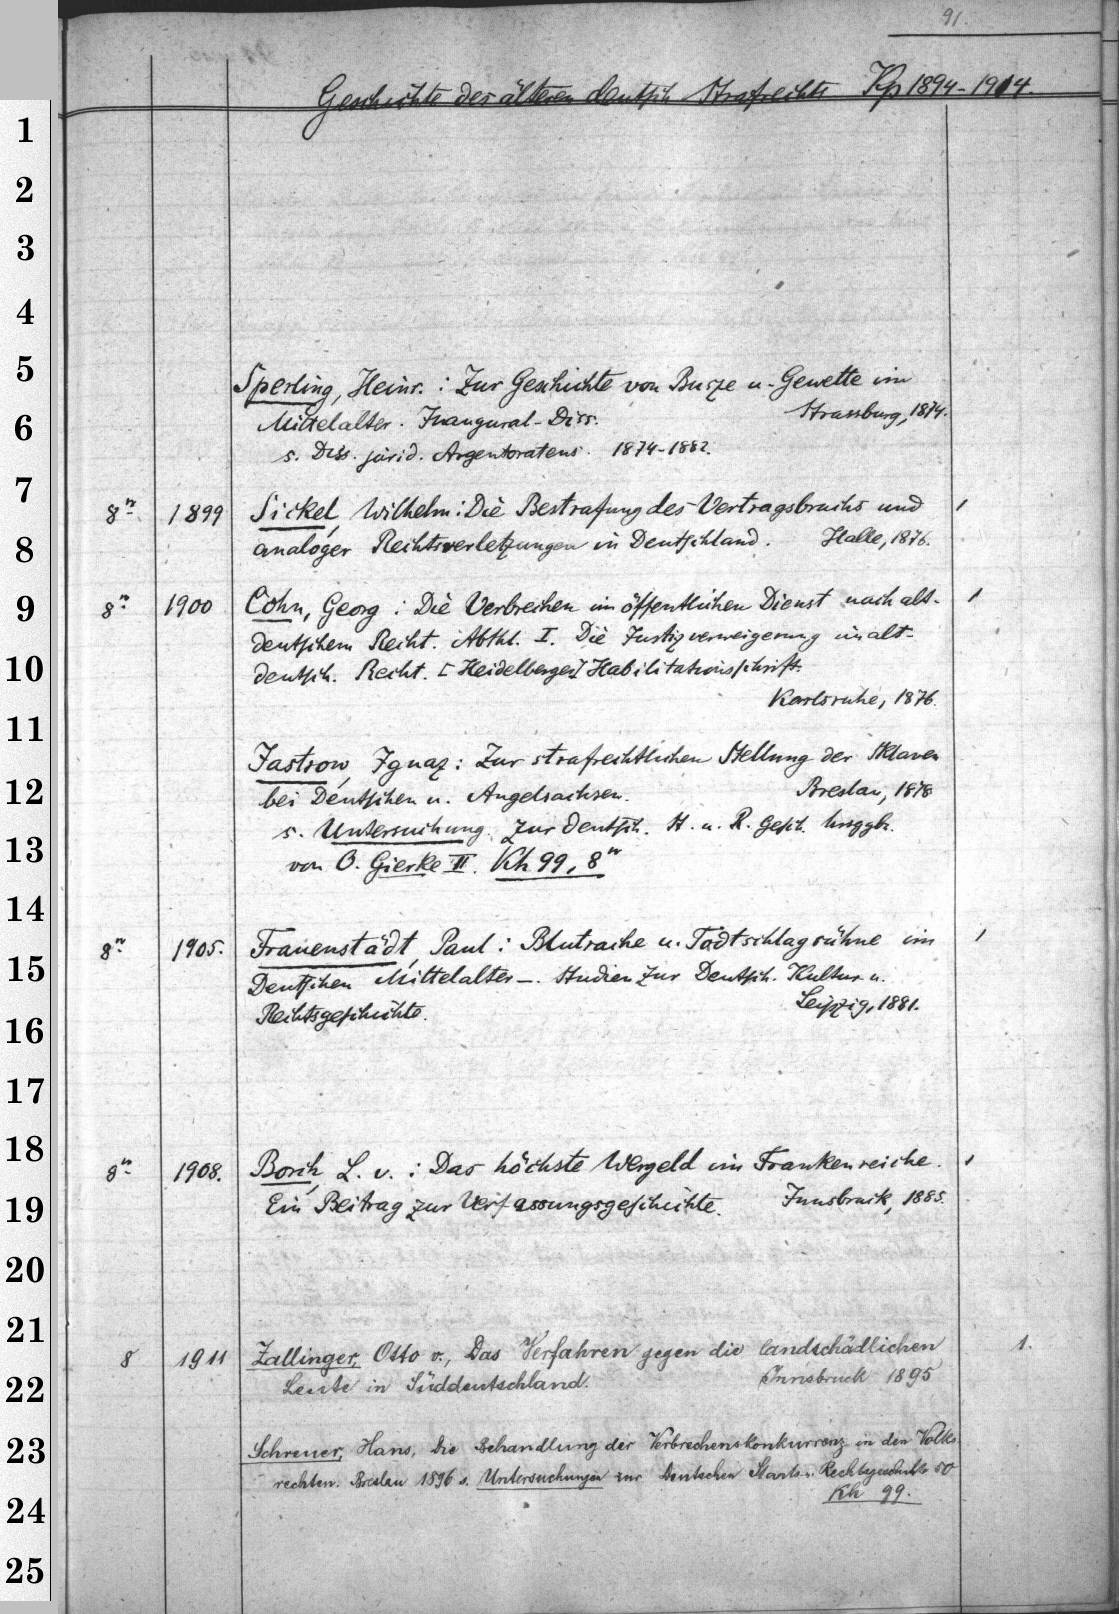 91.
Geschichte des älteren deutsch. Strafrechts Kp 1894-1914
1
2
3
4
5
Sperling, Heinr. : Zur Geschichte von Busze u. Gewette im
Mittelalter. Inaugural-Diss. Strassburg, 1874.
6
s. Diss. jurid. Argentoratens. 1874-1882.
7
8° 1899 Sickel, Wilhelm: Die Bestrafung des Vertragsbruchs und 1
8
analoger Rechtsverletzungen in Deutschland. Halle, 1876.
9
8° 1900 Cohn, Georg : Die Verbrechen im öffentlichen Dienst nach alt- 1
deutschem Recht. Abthl. I. Die Justizverweigerung im alt-
10
deutsch. Recht. [Heidelberger] Habilitationsschrift.
Karlsruhe, 1876.
11
Jastrow, Ignaz : Zur strafrechtlichen Stellung der Sklaven
12
bei Deutschen u. Angelsachsen. Breslau, 1878
s. Untersuchung. zur deutsch. St. u. R. Gesch. hrsggb.
13
von O. Gierke II. Kh 99, 8°
14
8° 1905. Frauenstädt, Paul : Blutrache u. Todtschlagsühne im 1
15
Deutschen Mittelalter. Studien zur Deutsch. Kultur u.
Rechtsgeschichte. Leipzig, 1881.
16
17
18
8° 1908. Borch, L. v. : Das höchste Wergeld im Frankenreiche. 1
19
Ein Beitrag zur Verfassungsgeschichte. Innsbruck, 1885.
20
21
8 1911 Zallinger, Otto v., Das Verfahren gegen die landschädlichen 1.
22
Leute in Süddeutschland. Innsbruck 1895
23
Schreuer, Hans, Die Behandlung der Verbrechenskonkurrenz in den Volks
rechten. Breslau 1896 s. Untersuchungen zur Deutschen Staats u. Rechtsgeschichte 50
24
Kh 99.
25